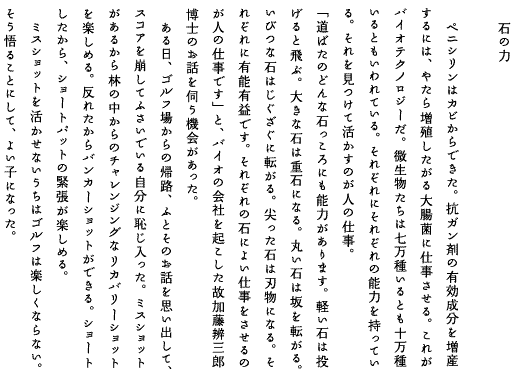 石の力
ペニシリンはカビからできた。抗ガン剤の有効成分を増産
するには、やたら増殖したがる大腸菌に仕事させる。これが
バイオテクノロジーだ。微生物たちは七万種いるとも十万種
いるともいわれている。それぞれにそれぞれの能力を持ってい
る。それを見つけて活かすのが人の仕事。
「道ばたのどんな石っころにも能力があります。軽い石は投
げると飛ぶ。大きな石は重石になる。丸い石は坂を転がる。
いびつな石はじぐざぐに転がる。尖った石は刃物になる。そ
れぞれに有能有益です。それぞれの石によい仕事をさせるの
が人の仕事です」と、バイオの会社を起こした故加藤辨三郎
博士のお話を伺う機会があった。
ある日、ゴルフ場からの帰路、ふとそのお話を思い出して、
スコアを崩してふさいでいる自分に恥じ入った。ミスショット
があるから林の中からのチャレンジングなリカバリーショット
を楽しめる。反れたからバンカーショットができる。ショート
したから、ショートパットの緊張が楽しめる。
ミスショットを活かせないうちはゴルフは楽しくならない。
そう悟ることにして、よい子になった。